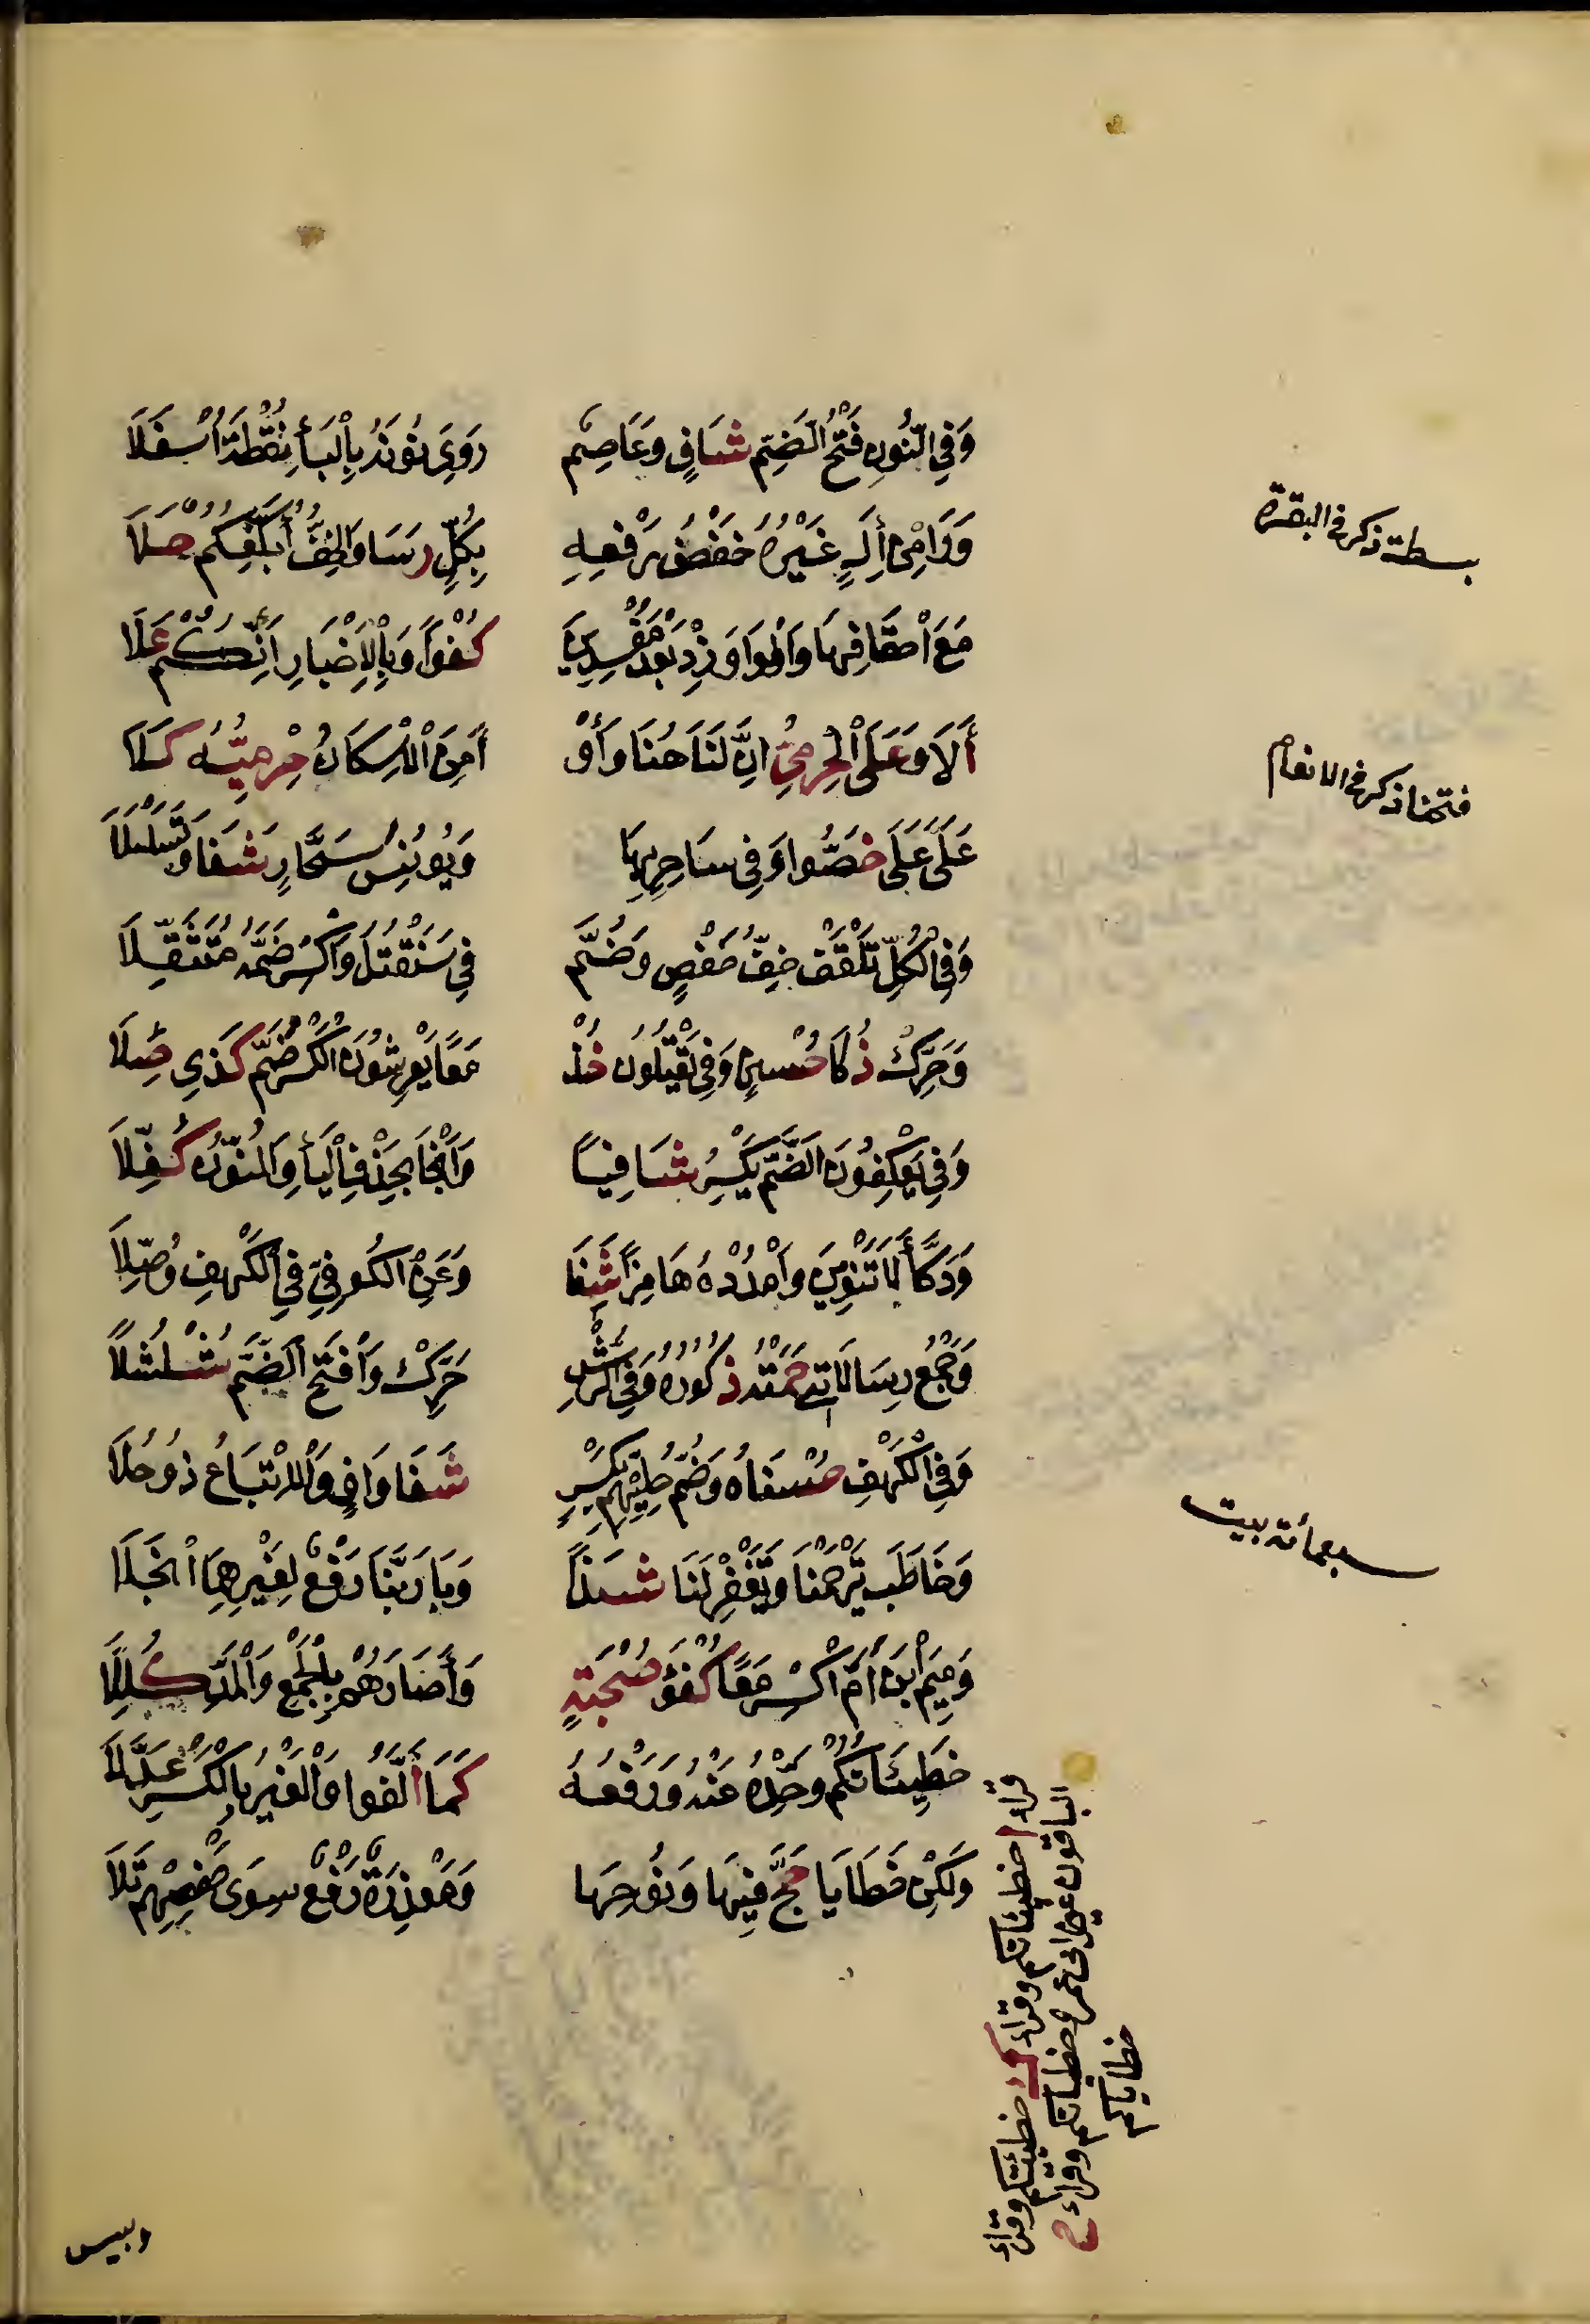 وَفِي النُّونِ فَتْحُ الضَّمِّ شَافٍ وَعَاصِمٌ رَوَى نُونَهُ بِالْبَاءِ نُقْطَةً اسْفَلَا
وَرَا مِنْ إِلَهٍ غَيْرُهُ خَفْضُ رَفْعِهِ بِكُلٍّ رَسَا وَالْخِفُّ أُبْلِغُكُمْ حَلَا
مَعَ احْقَافِهَا وَالْوَاوَ زِدْ بَعْدَ مُفْسِدِينَ كُفْوًا وَبِالْإِخْبَارِ إِنَّكُمُ عَلَا
أَلَا وَعَلَى الْحِرْمِيُّ إِنَّ لَنَا هُنَا وَأَوْ أَمِنَ الْإِسْكَانُ حِرْمِيُّهُ كَلَا
عَلَيَّ عَلَى خَصُّوا وَفِي سَاحِرٍ بِهَا وَيُونُسَ سَحَّارٍ شَفَا وَتَسَلْسَلَا
وَفِي الْكُلِّ تَلْقَفْ خِفُّ حَفْصٍ وَضُمَّ فِي سَنَقْتُلُ وَاكْسِرْ ضَمَّهُ مُتَثَقِّلَا
وَحَرِّكْ ذُكَا حُسْنٍ وَفِي يَقْتُلُونَ خُذْ مَعًا يَعْرِشُونَ الْكَسْرُ ضُمَّ كَذِي صِلَا
وَفِي يَعْكُفُونَ الضَّمُّ يُكْسَرُ شَافِيًا وَأَنْجَى بِحَذْفِ الْيَاءِ وَالنُّونِ كُفِّلَا
وَدَكَّاءَ لَا تَنْوِينَ وَامْدُدْهُ هَامِزًا شَفَا وَعَنِ الْكُوفِيِّ فِي الْكَهْفِ وُصِّلَا
وَجَمْعُ رِسَالَاتِي حَمَتْهُ ذُكُورُهُ وَفِي الرُّشْدِ حَرِّكْ وَافْتَحِ الضَّمَّ شُلْشُلَا
وَفِي الْكَهْفِ حُسْنَاهُ وَضَمُّ حُلِيِّهِمْ بِكَسْرٍ شَفَا وَافٍ وَالِاتْبَاعُ ذُو حُلَا
وَخَاطَبَ تَرْحَمْنَا وَتَغْفِرْ لَنَا شَذًا وَبَا رَبَّنَا رَفْعٌ لِغَيْرِهِمَا انْجَلَا
وَمِيمَ ابْنَ أُمَّ اكْسِرْ مَعًا كُفْؤَ صُحْبَةٍ وَآصَارَهُمْ بِالْجَمْعِ وَالْمَدِّ كُلِّلَا
خَطِيئَاتُكُمْ وَحِّدْهُ عَنْهُ وَرَفْعُهُ كَمَا أَلَّفُوا وَالْغَيْرُ بِالْكَسْرِ عَدَّلَا
وَلَكِنْ خَطَايَا حَجَّ فِيهَا وَنُوحِهَا وَمَعْذِرَةً رَفْعٌ سِوَى حَفْصِهِمْ تَلَا
بسطة ذكر في البقرة
فتحنا ذكر في الانعام
سبعمائة بيت
قراء ا خطيئاتكم وقراء ك خطيئتكم وقراء
الباقون غير ابى عمرو خطيئاتكم وقراء ح
خطاياكم
وبيس